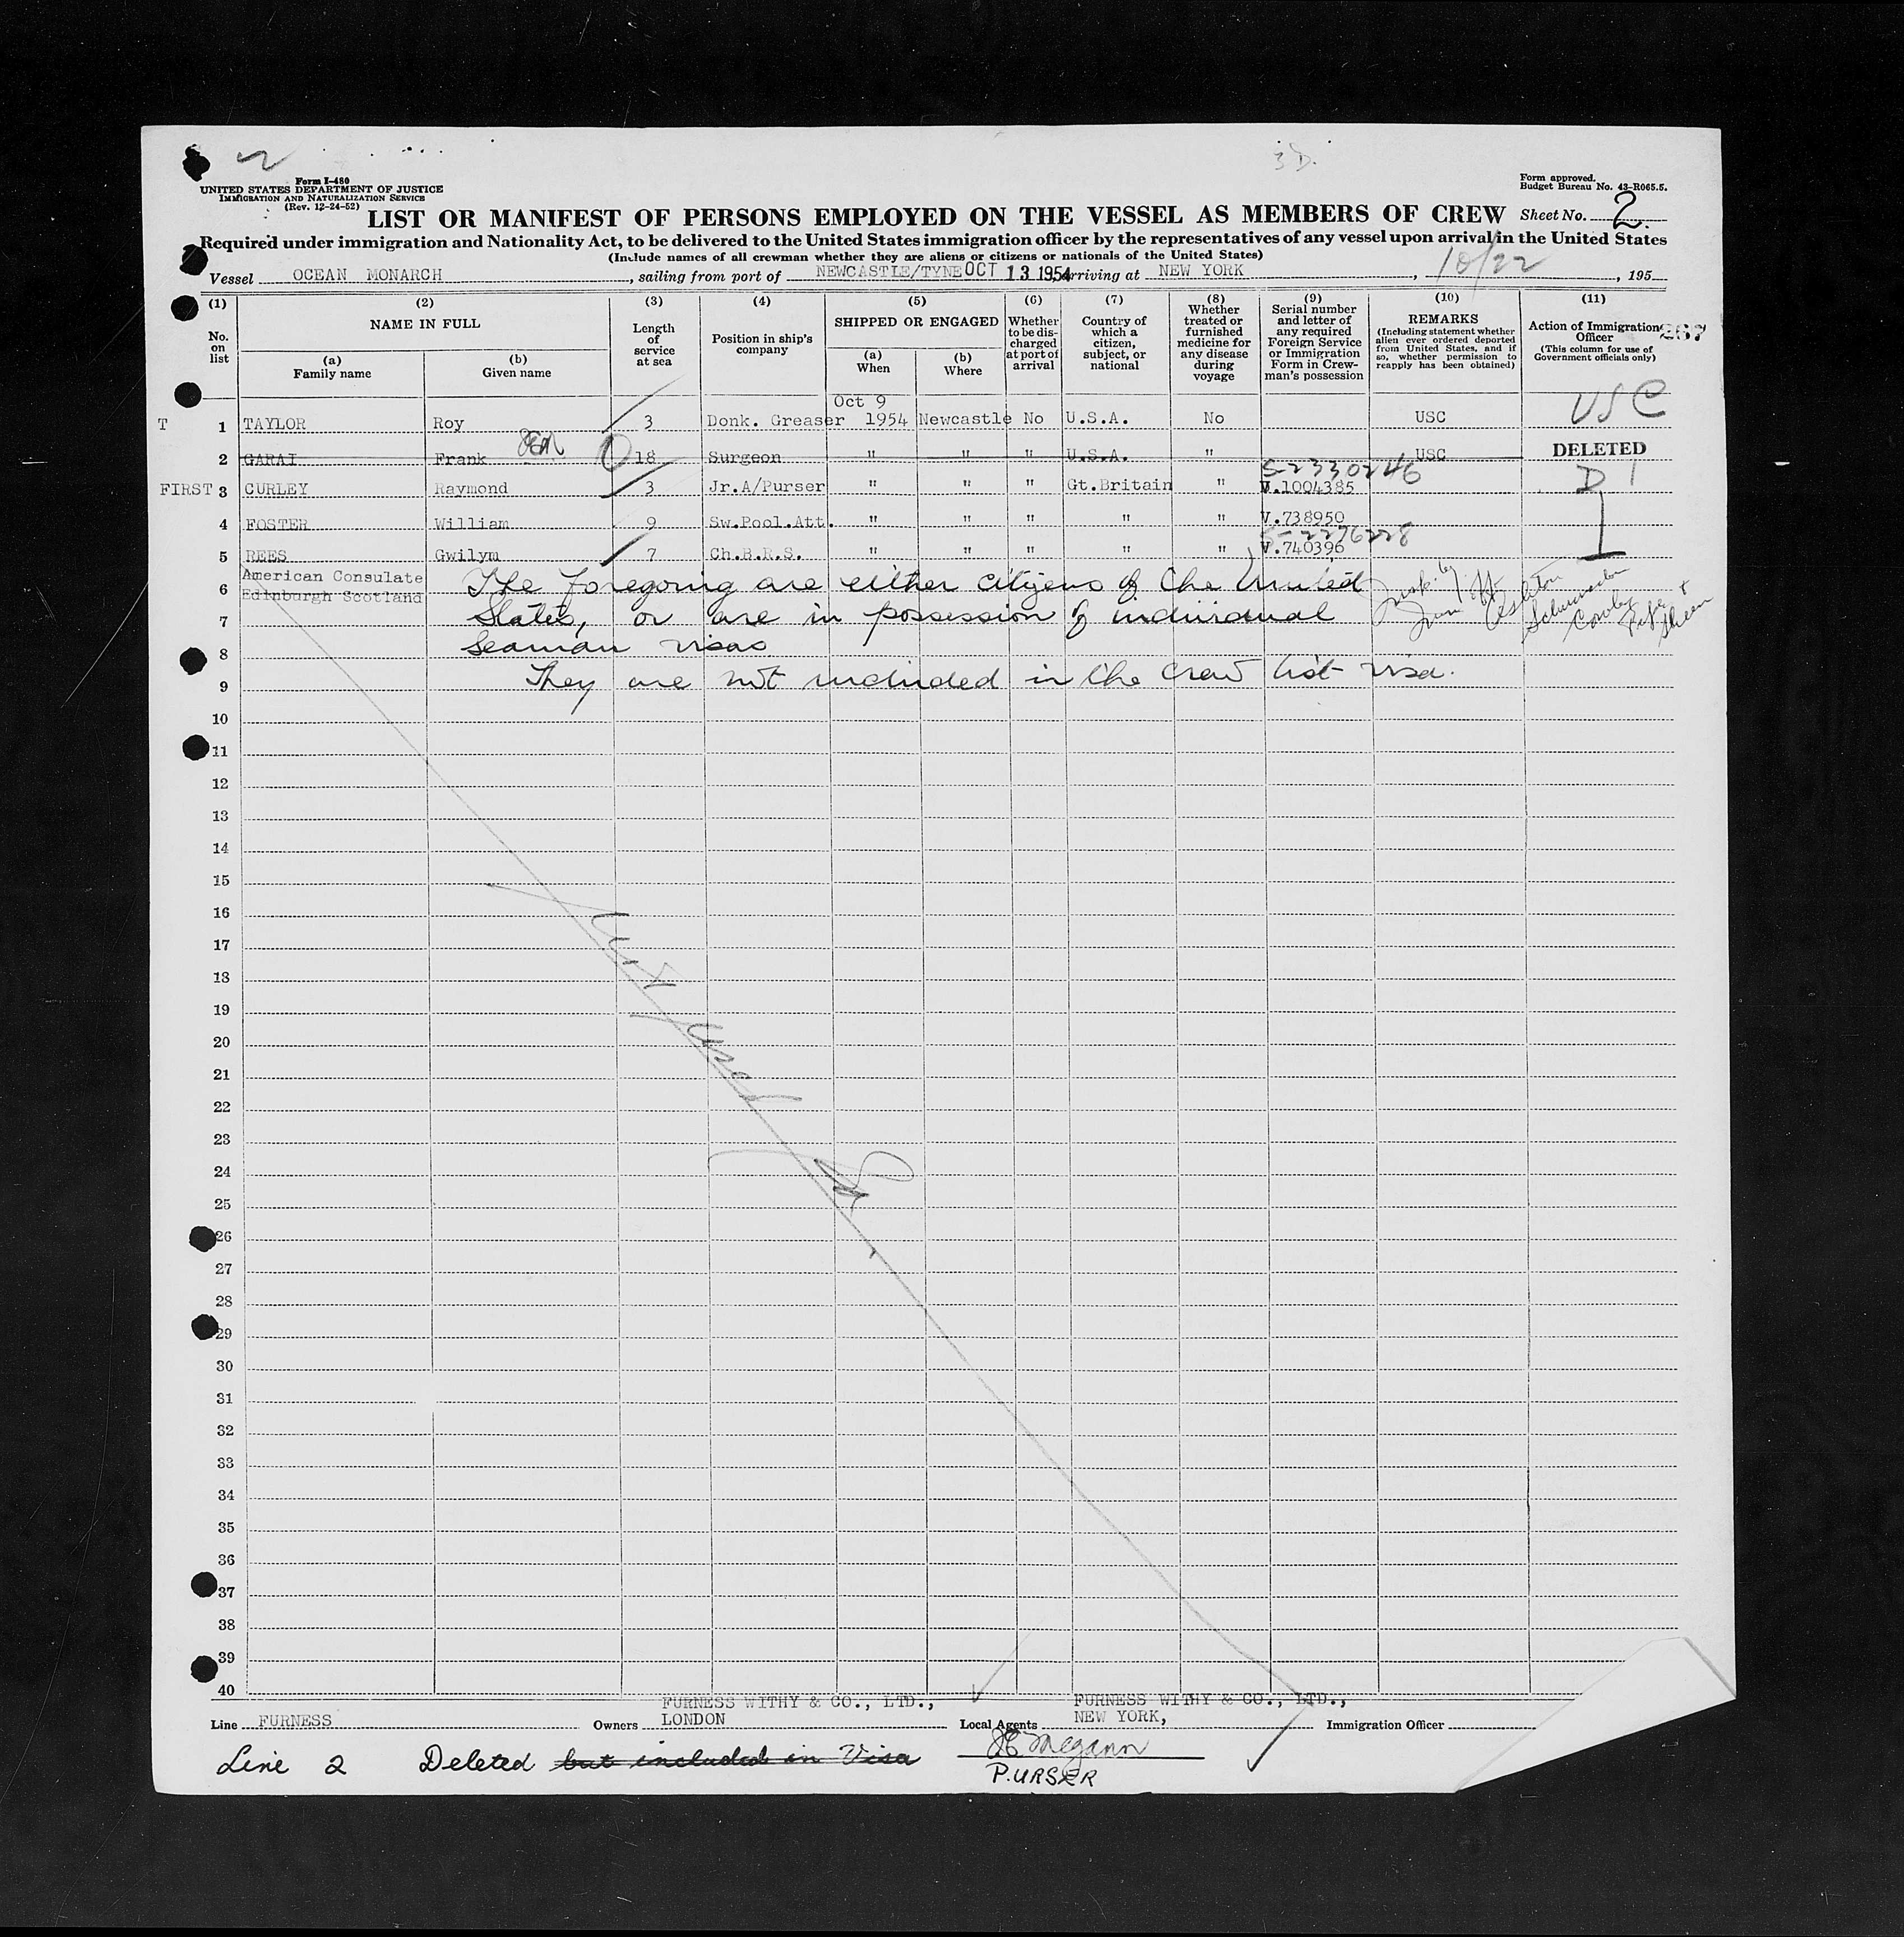 3 D.
Form I-480
UNITED STATES DEPARTMENT OF JUSTICE
IMMIGRATION AND NATURALIZATION SERVICE
(Rev. 12-24-52)
Form approved.
Budget Bureau No. 43-R065.5.
LIST OR MANIFEST OF PERSONS EMPLOYED ON THE VESSEL AS MEMBERS OF CREW Sheet No. 2.
Required under immigration and Nationality Act, to be delivered to the United States immigration officer by the representatives of any vessel upon arrival in the United States
(Include names of all crewman whether they are aliens or citizens or nationals of the United States)
Vessel OCEAN MONARCH, sailing from port of NEWCASTLE/TYNE OCT 13 1954 arriving at NEW YORK, 10/22, 195
(1) (2) (3) (4) (5) (6) (7) (8) (9) (10) (11)
No. on list
NAME IN FULL
(a) Family name
(b) Given name
Length of service at sea
Position in ship's company
SHIPPED OR ENGAGED
(a) When
(b) Where
Whether to be discharged at port of arrival
Country of which a citizen, subject, or national
Whether treated or furnished medicine for any disease during voyage
Serial number and letter of any required Foreign Service or Immigration Form in Crewman's possession
REMARKS
(Including statement whether alien ever ordered deported from United States, and if so, whether permission to reapply has been obtained)
Action of Immigration Officer
(This column for use of Government officials only)
267
Oct 9
T 1 TAYLOR Roy 3 Donk. Greaser 1954 Newcastle No U.S.A. No USC USC
2 GARAI Frank 18 Surgeon " " " U.S.A. " USC DELETED
S-2330246
FIRST 3 CURLEY Raymond 3 Jr.A/Purser " " " Gt.Britain " V.1004385 D 1
4 FOSTER William 9 Sw.Pool.Att. " " " " " V.738950
S-2276228
5 REES Gwilym 7 Ch.B.R.S. " " " " " V.740396
American Consulate
6 Edinburgh Scotland The foregoing are either citizens of the United
7 States, or are in possession of individual
8 Seaman visas
9 They are not included in the crew list visa.
10
11
12
13
14
15
16
17
18
19
20
21
22
23
24
25
26
27
28
29
30
31
32
33
34
35
36
37
38
39
40
Not used
Line FURNESS Owners FURNESS WITHY & CO., LTD., LONDON Local Agents FURNESS WITHY & CO., LTD., NEW YORK, Immigration Officer
Line 2 Deleted but included in Visa
PURSER